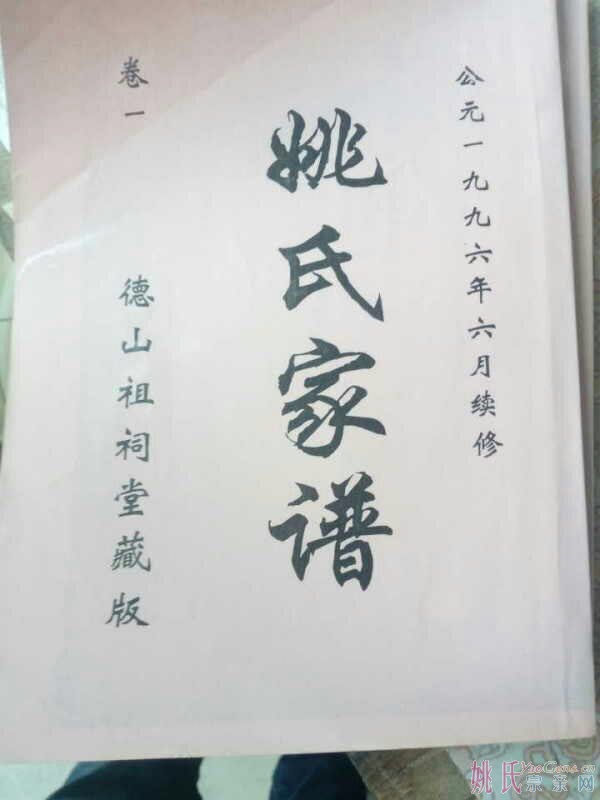 公元一九九六年六月续修
姚氏家谱
卷一
德山祖祠堂藏版
YaoGens.cn
姚氏宗亲网